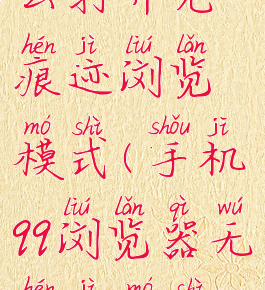 hén jì liú lǎn
痕迹浏览
mó shì shǒu jī
模式(手机
liú lǎn qì wú
99浏览器无
hén jì mó shì